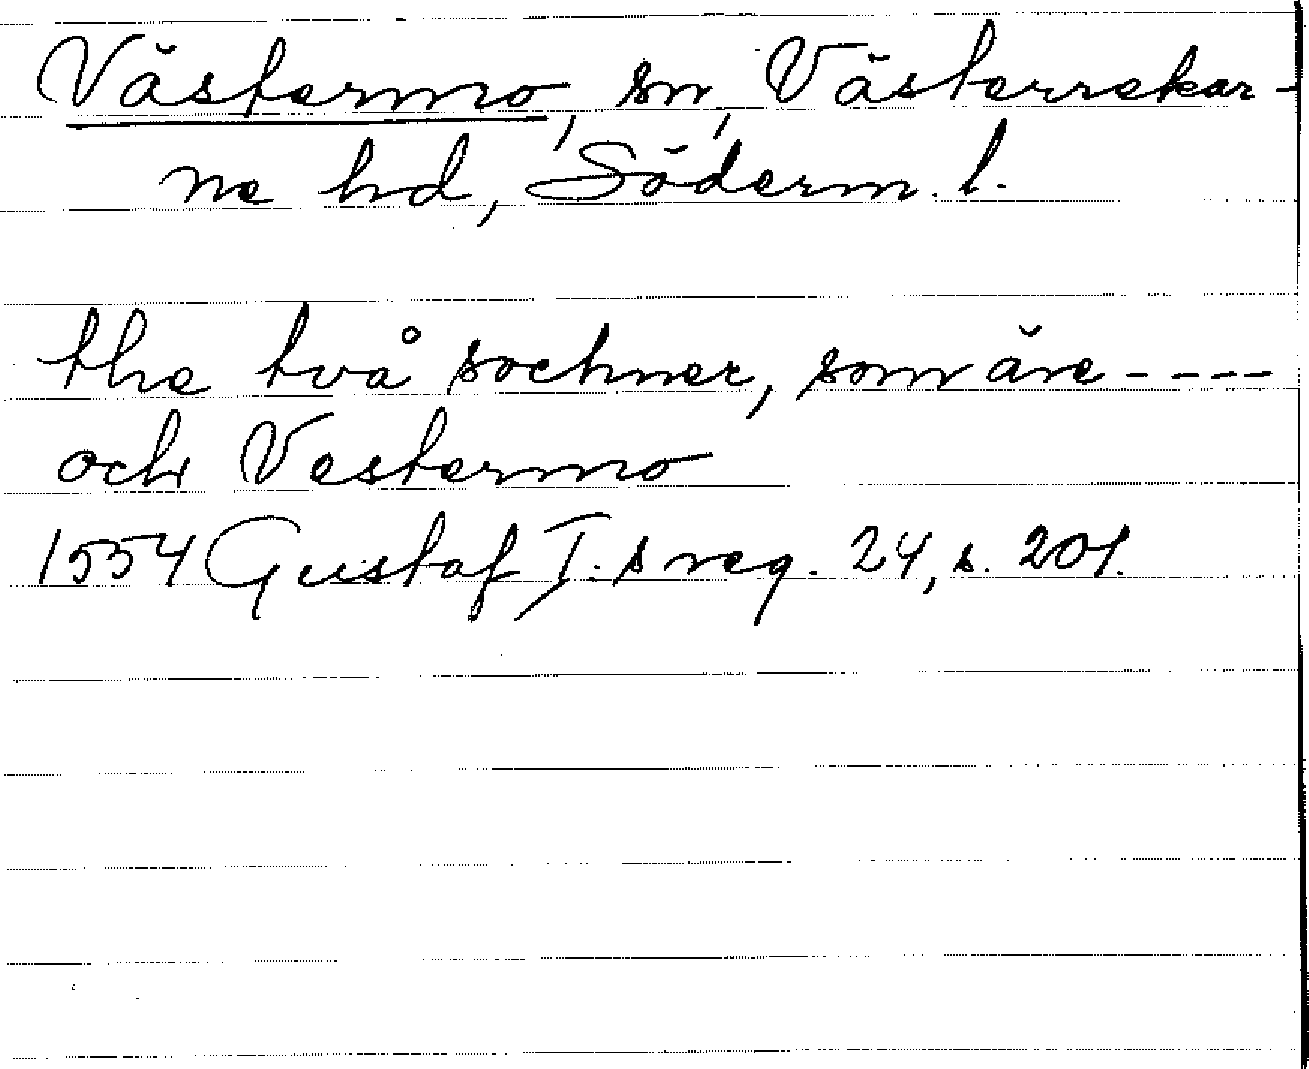 Västermo, sn, Västerrekar-
ne hd, Söderm. l.
the två sochner, som äre ----
och Vestermo
1554 Gustaf I:s reg. 24, s. 201.